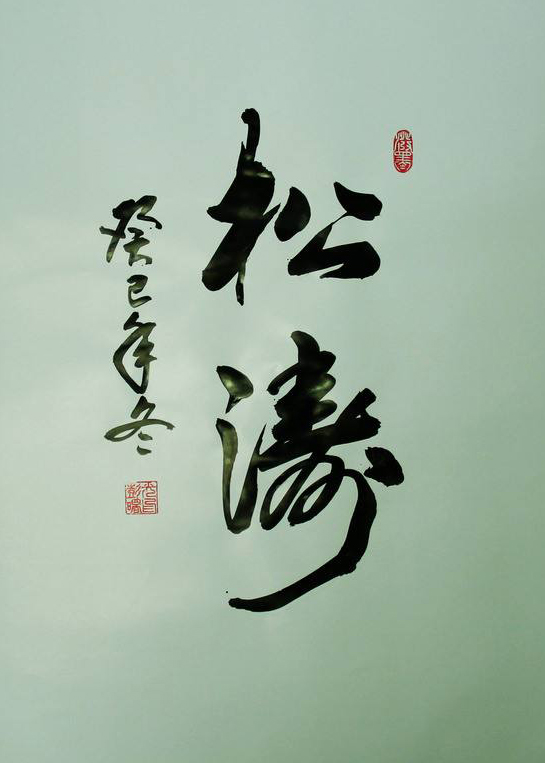 松濤
癸巳年冬